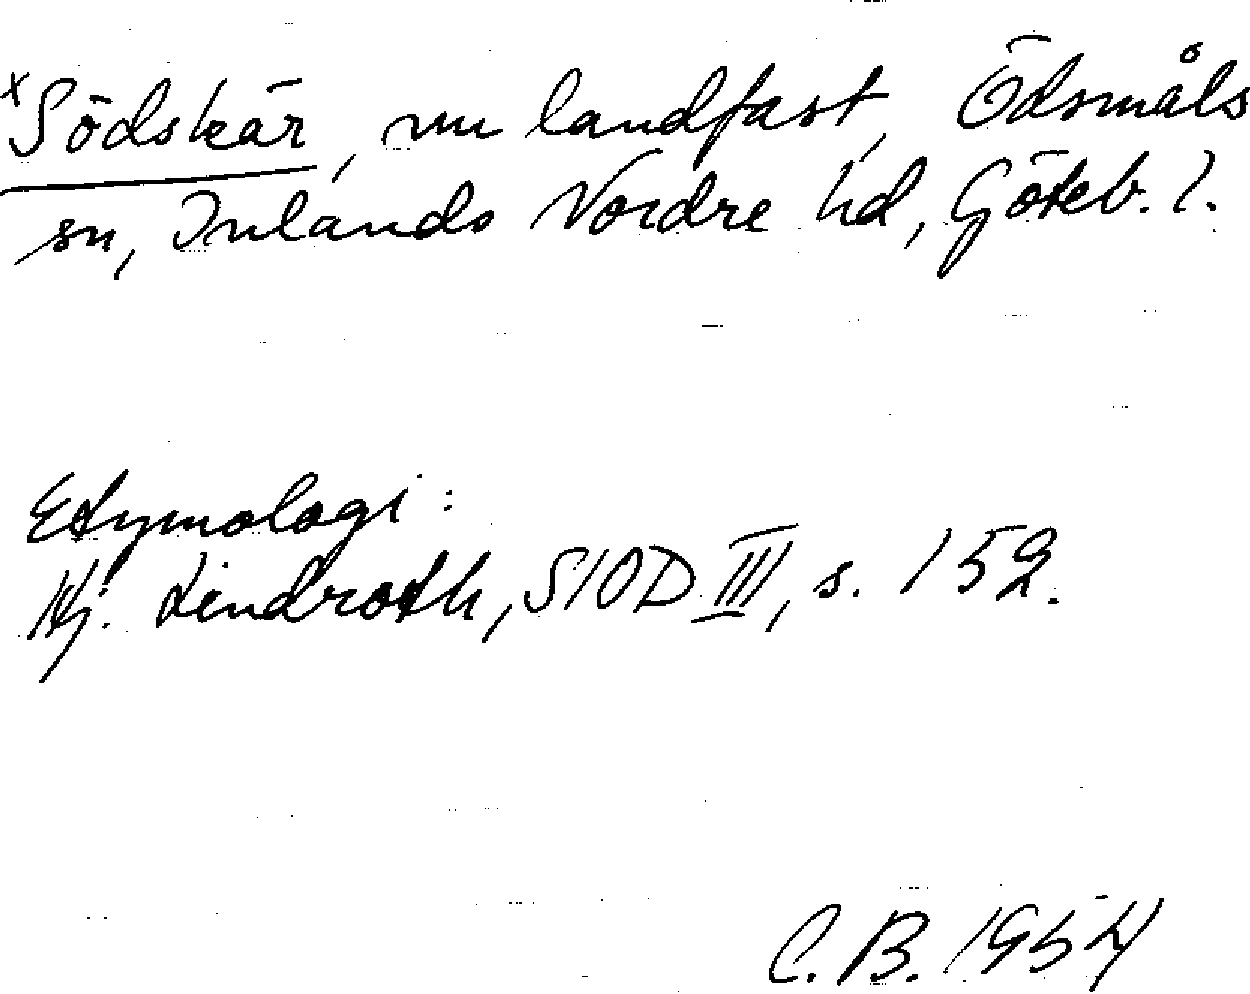 ×Södskär, nu landfast, Ödsmåls
sn, Inlands Nordre hd, Göteb. l.
Etymologi:
Hj. Lindroth, SIOD III, s. 152.
C. B. 1954